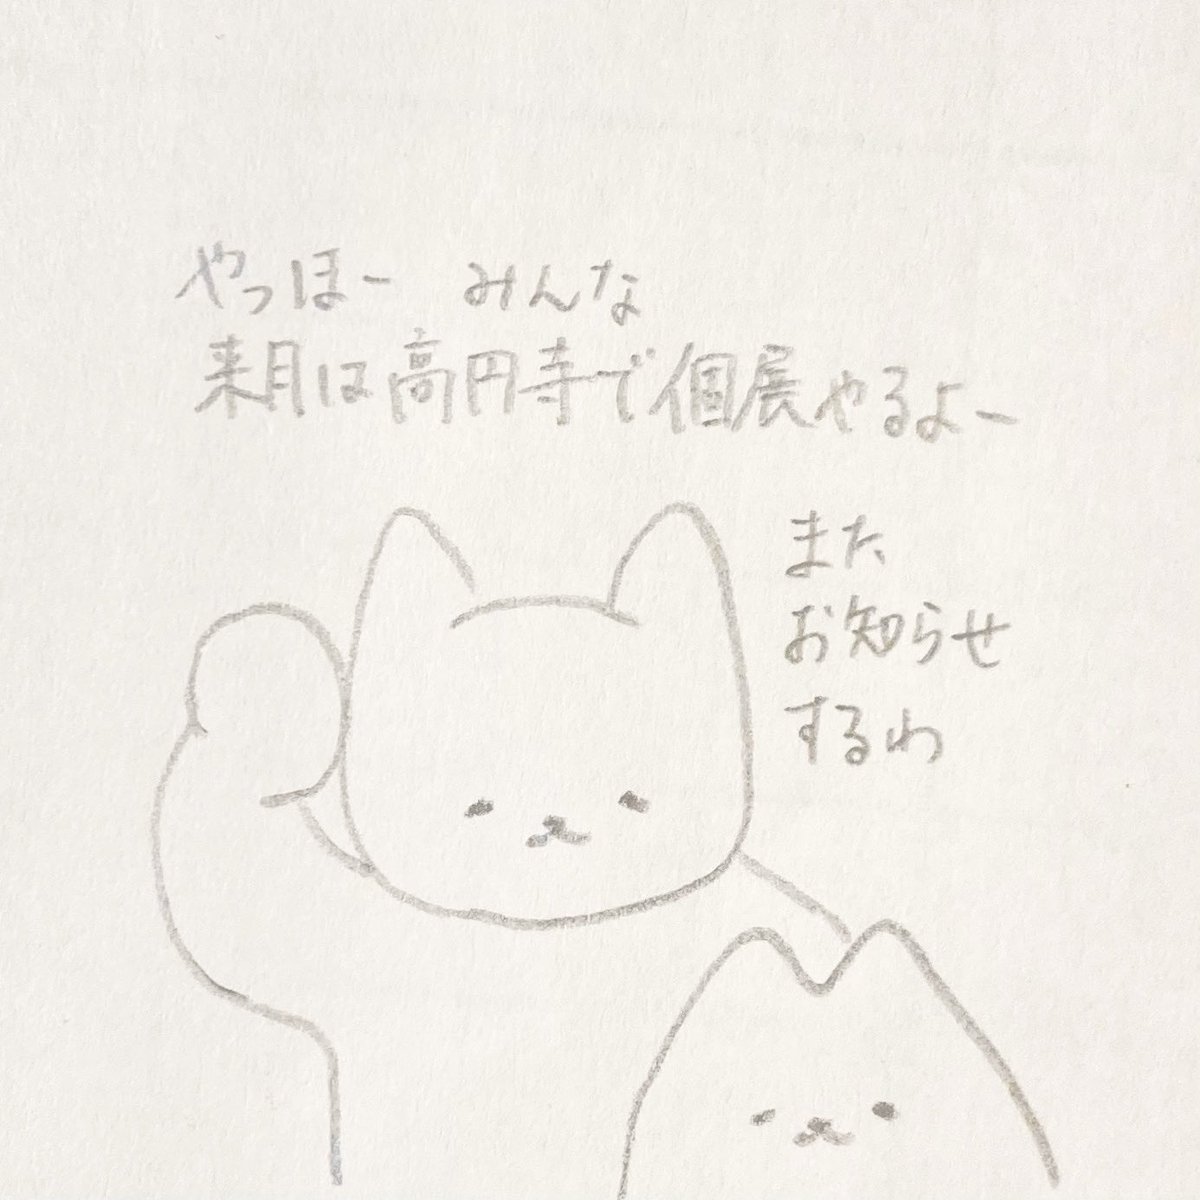 やっほー　みんな
来月は高円寺で個展やるよー
また
お知らせ
するわ